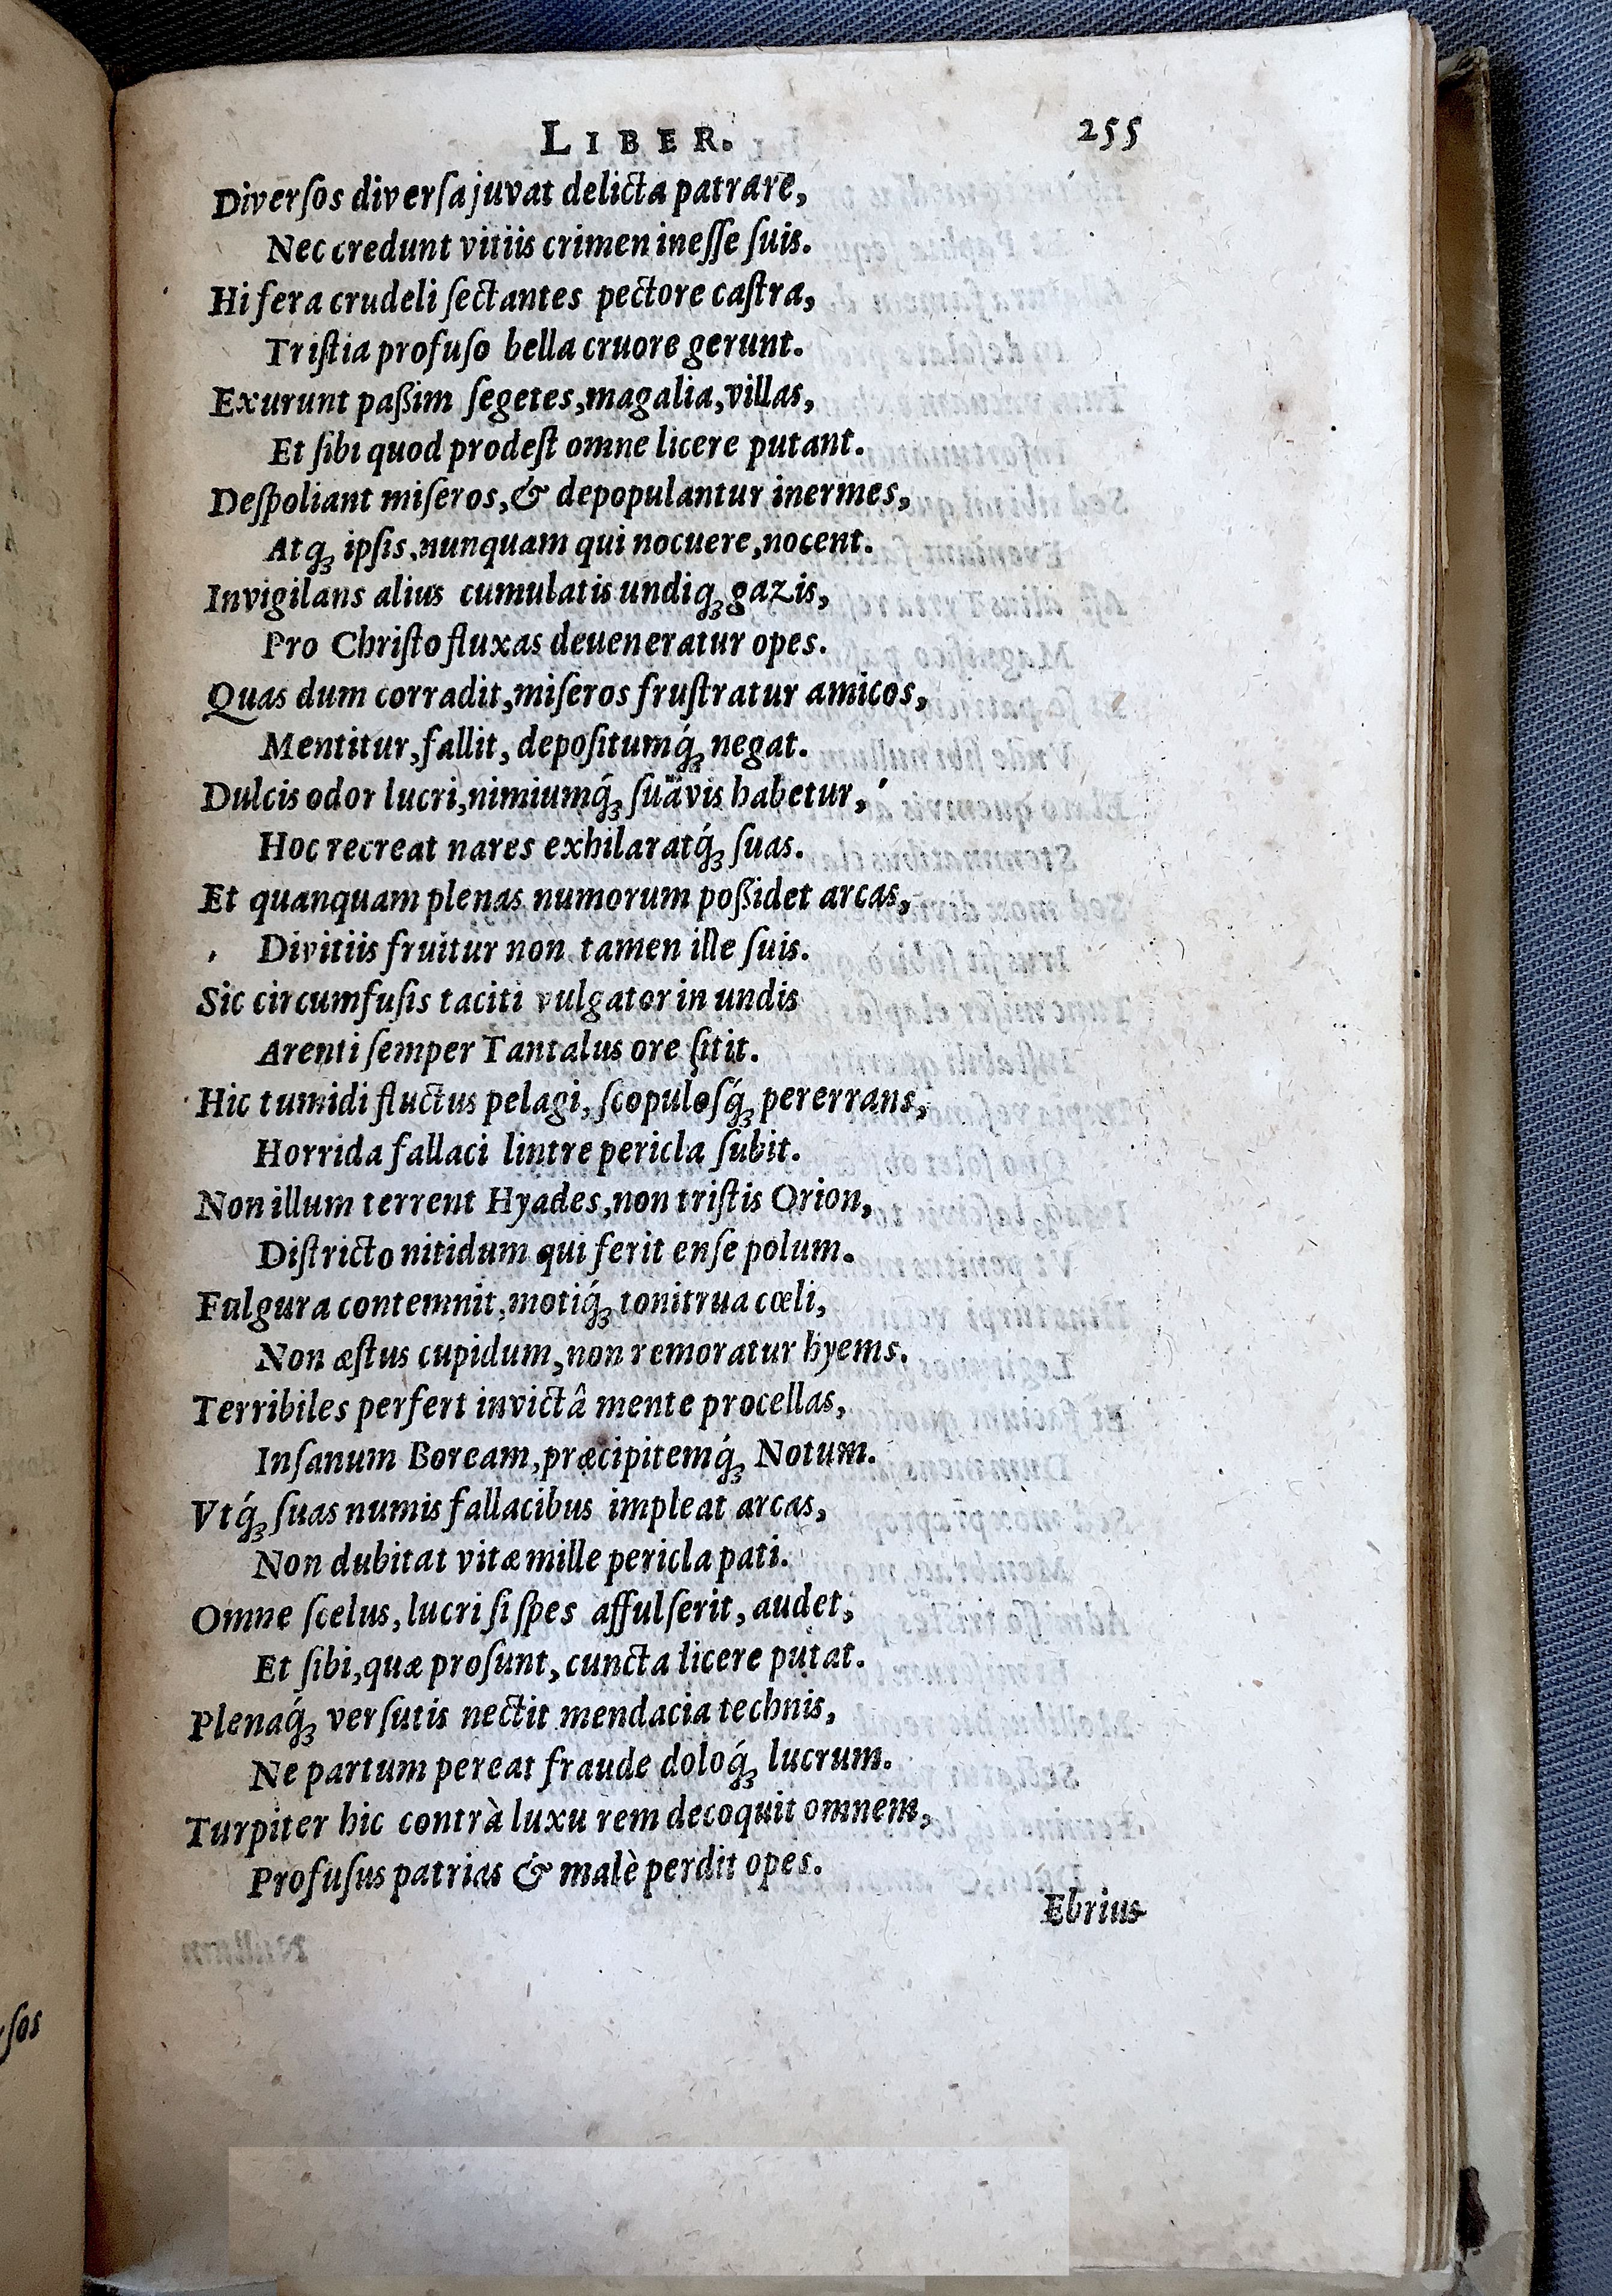 LIBER. 255
Diverſos diverſa juvat delicta patrare,
Nec credunt vitiis crimen ineſſe ſuis.
Hi fera crudeli ſectantes pectore caſtra,
Triſtia profuſo bella cruore gerunt.
Exurunt paßim ſegetes, magalia, villas,
Et ſibi quod prodeſt omne licere putant.
Deſpoliant miſeros, & depopulantur inermes,
Atq́ꝫ ipſis, nunquam qui nocuere, nocent.
Invigilans alius cumulatis undiqꝫ gazis,
Pro Chriſto fluxas deueneratur opes.
Quas dum corradit, miſeros fruſtratur amicos,
Mentitur, fallit, depoſitumq́ꝫ negat.
Dulcis odor lucri, nimiumq́ꝫ ſuävis habetur,
Hoc recreat nares exhilaratq́ꝫ ſuas.
Et quanquam plenas numorum poßidet arcas,
Divitiis fruitur non tamen ille ſuis.
Sic circumfuſis taciti vulgator in undis
Arenti ſemper Tantalus ore ſitit.
Hic tumidi fluctus pelagi, ſcopuloſq́ꝫ pererrans,
Horrida fallaci lintre pericla ſubit.
Non illum terrent Hyades, non triſtis Orion,
Diſtricto nitidum qui ferit enſe polum.
Fulgura contemnit, motiq́ꝫ tonitrua cœli,
Non æſtus cupidum, non remoratur hyems.
Terribiles perfert invictâ mente procellas,
Inſanum Boream, præcipitemq́ꝫ Notum.
Vtq́ꝫ ſuas numis fallacibus impleat arcas,
Non dubitat vitæ mille pericla pati.
Omne ſcelus, lucri ſi ſpes affulſerit, audet,
Et ſibi, quæ proſunt, cuncta licere putat.
Plenaq́ꝫ verſutis nectit mendacia technis,
Ne partum pereat fraude doloq́ꝫ lucrum.
Turpiter hic contrà luxu rem decoquit omnem,
Profuſus patrias & malè perdit opes.
Ebrius